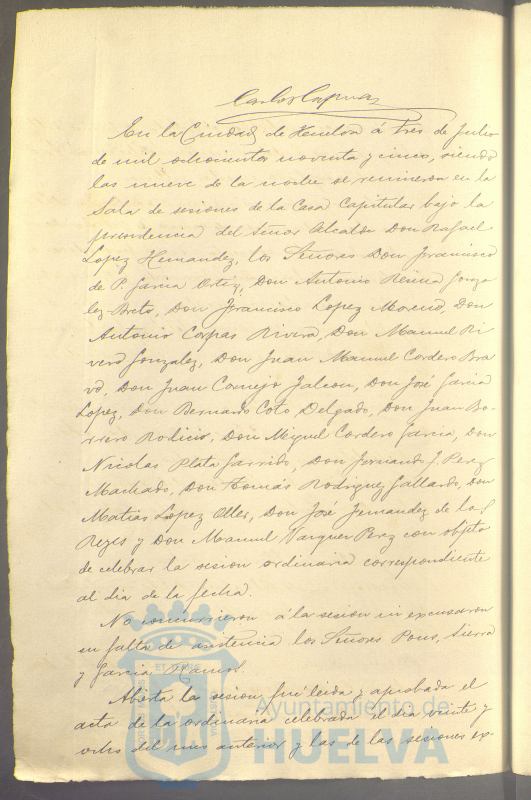 Carlos Capruaz
En la Ciudad de Huelva á tres de Julio
de mil ochocientos noventa y cinco, siendo
las nueve de la noche se reunieron en la
Sala de sesiones de la Casa Capitular bajo la
presidencia del Señor Alcalde Don Rafael
Lopez Hernandez, los Señores Don Francisco
de P. Garcia Ortiz, Don Antonio Gonza
lez Don Francisco Lopez Moreno, Don
Antonio Corpas Rivero, Don Manuel Ri
vero Gonzalez, Don Juan Manuel Cordero Bra
vo, Don Juan Cornejo Jalcon, Don José Garcia
Lopez, Don Bernardo Coto Delgado, Don Juan Bo-
rrero Don Miguel Cordero Garcia, Don
Nicolas Plata Garrido, Don Fernando J. Perez
Machado, Don Tomás Rodriguez Gallardo, Don
Matias Lopez Oller, Don José Fernandez de los
Reyes y Don Manuel Vazquez Perez con objeto
de celebrar la sesion ordinaria correspondiente
al dia de la fecha.
No concurrieron á la sesion ni excusaron
su falta de asistencia los Señores Pons, Sierra
y Garcia Ramos.
Abierta la sesion, fué leida y aprobada el
acta de la ordinaria celebrada el dia veinte y
ocho del mes anterior y las de las sesiones ex-
Ayuntamiento de:
HUELVA